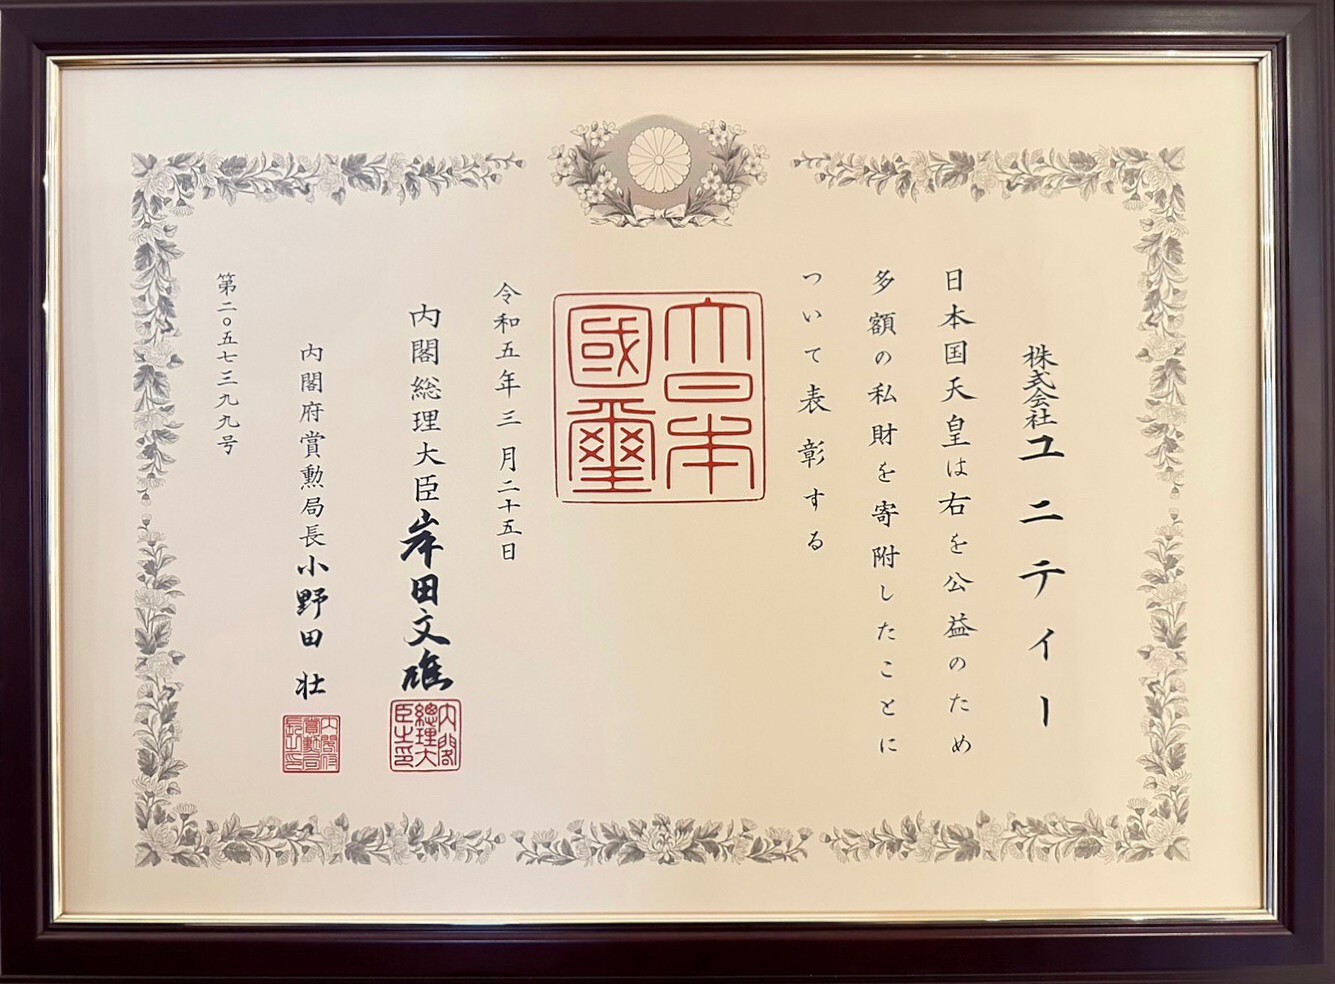 株式会社ユニティー
日本国天皇は右を公益のため
多額の私財を寄附したことに
ついて表彰する
大日本國璽
令和五年三月二十五日
内閣総理大臣岸田文雄
内閣總理大臣之印
内閣府賞勲局長小野田壮
内閣府賞勳局長之印
第二〇五七三九九号